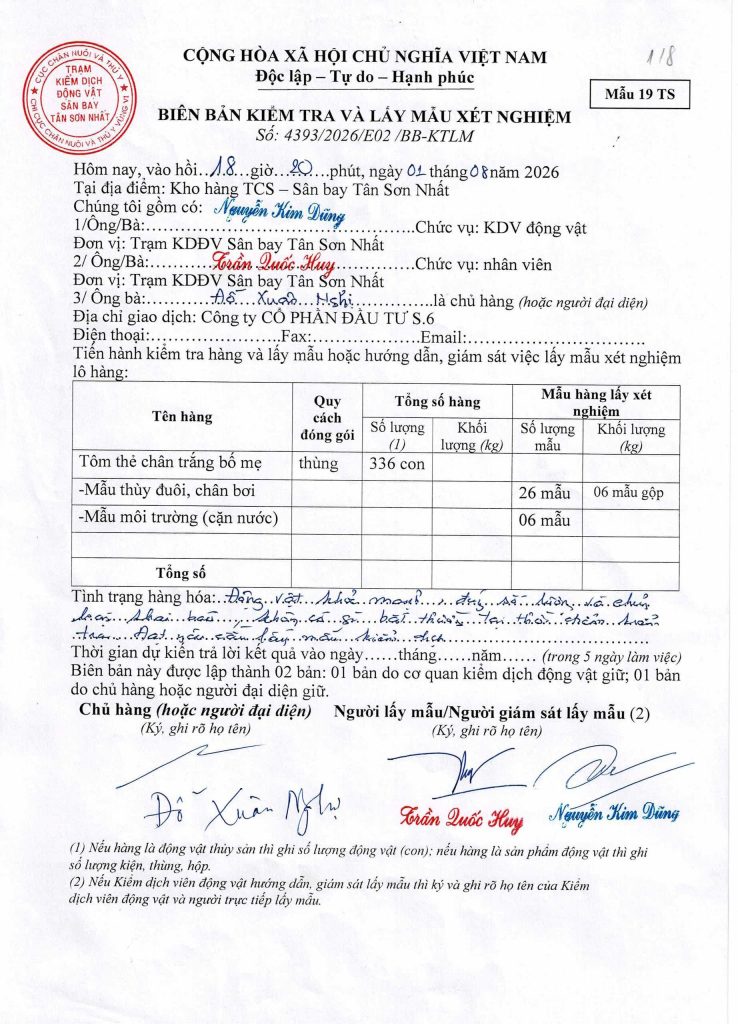 1/8
CỤC CHĂN NUÔI VÀ THÚ Y
TRẠM
KIỂM DỊCH
ĐỘNG VẬT
SÂN BAY
TÂN SƠN NHẤT
CHI CỤC CHĂN NUÔI VÀ THÚ Y VÙNG VI
CỘNG HÒA XÃ HỘI CHỦ NGHĨA VIỆT NAM
Độc lập – Tự do – Hạnh phúc
Mẫu 19 TS
BIÊN BẢN KIỂM TRA VÀ LẤY MẪU XÉT NGHIỆM
Số: 4393/2026/E02 /BB-KTLM
Hôm nay, vào hồi...18...giờ...20...phút, ngày 01 tháng 08 năm 2026
Tại địa điểm: Kho hàng TCS – Sân bay Tân Sơn Nhất
Chúng tôi gồm có: Nguyễn Kim Dũng
1/Ông/Bà:……………………………………..Chức vụ: KDV động vật
Đơn vị: Trạm KDĐV Sân bay Tân Sơn Nhất
2/ Ông/Bà:…………Trần Quốc Huy…………Chức vụ: nhân viên
Đơn vị: Trạm KDĐV Sân bay Tân Sơn Nhất
3/ Ông bà:…………Đỗ Xuân Nghi…………..là chủ hàng (hoặc người đại diện)
Địa chỉ giao dịch: Công ty CỔ PHẦN ĐẦU TƯ S.6
Điện thoại:………………….Fax:………………….Email:……………………….
Tiến hành kiểm tra hàng và lấy mẫu hoặc hướng dẫn, giám sát việc lấy mẫu xét nghiệm
lô hàng:
Tên hàng Quy cách đóng gói Tổng số hàng Mẫu hàng lấy xét nghiệm
Số lượng (1) Khối lượng (kg) Số lượng mẫu Khối lượng (kg)
Tôm thẻ chân trắng bố mẹ thùng 336 con
-Mẫu thùy đuôi, chân bơi 26 mẫu 06 mẫu gộp
-Mẫu môi trường (cặn nước) 06 mẫu
Tổng số
Tình trạng hàng hóa: Động vật khỏe mạnh, đúng số lượng và chủng
loại khai báo, không có gì bất thường tại thời điểm kiểm
tra. Đạt yêu cầu lấy mẫu kiểm dịch
Thời gian dự kiến trả lời kết quả vào ngày……tháng……năm…… (trong 5 ngày làm việc)
Biên bản này được lập thành 02 bản: 01 bản do cơ quan kiểm dịch động vật giữ; 01 bản
do chủ hàng hoặc người đại diện giữ.
Chủ hàng (hoặc người đại diện) Người lấy mẫu/Người giám sát lấy mẫu (2)
(Ký, ghi rõ họ tên) (Ký, ghi rõ họ tên)
Đỗ Xuân Nghi Trần Quốc Huy Nguyễn Kim Dũng
(1) Nếu hàng là động vật thủy sản thì ghi số lượng động vật (con); nếu hàng là sản phẩm động vật thì ghi
số lượng kiện, thùng, hộp.
(2) Nếu Kiểm dịch viên động vật hướng dẫn, giám sát lấy mẫu thì ký và ghi rõ họ tên của Kiểm
dịch viên động vật và người trực tiếp lấy mẫu.